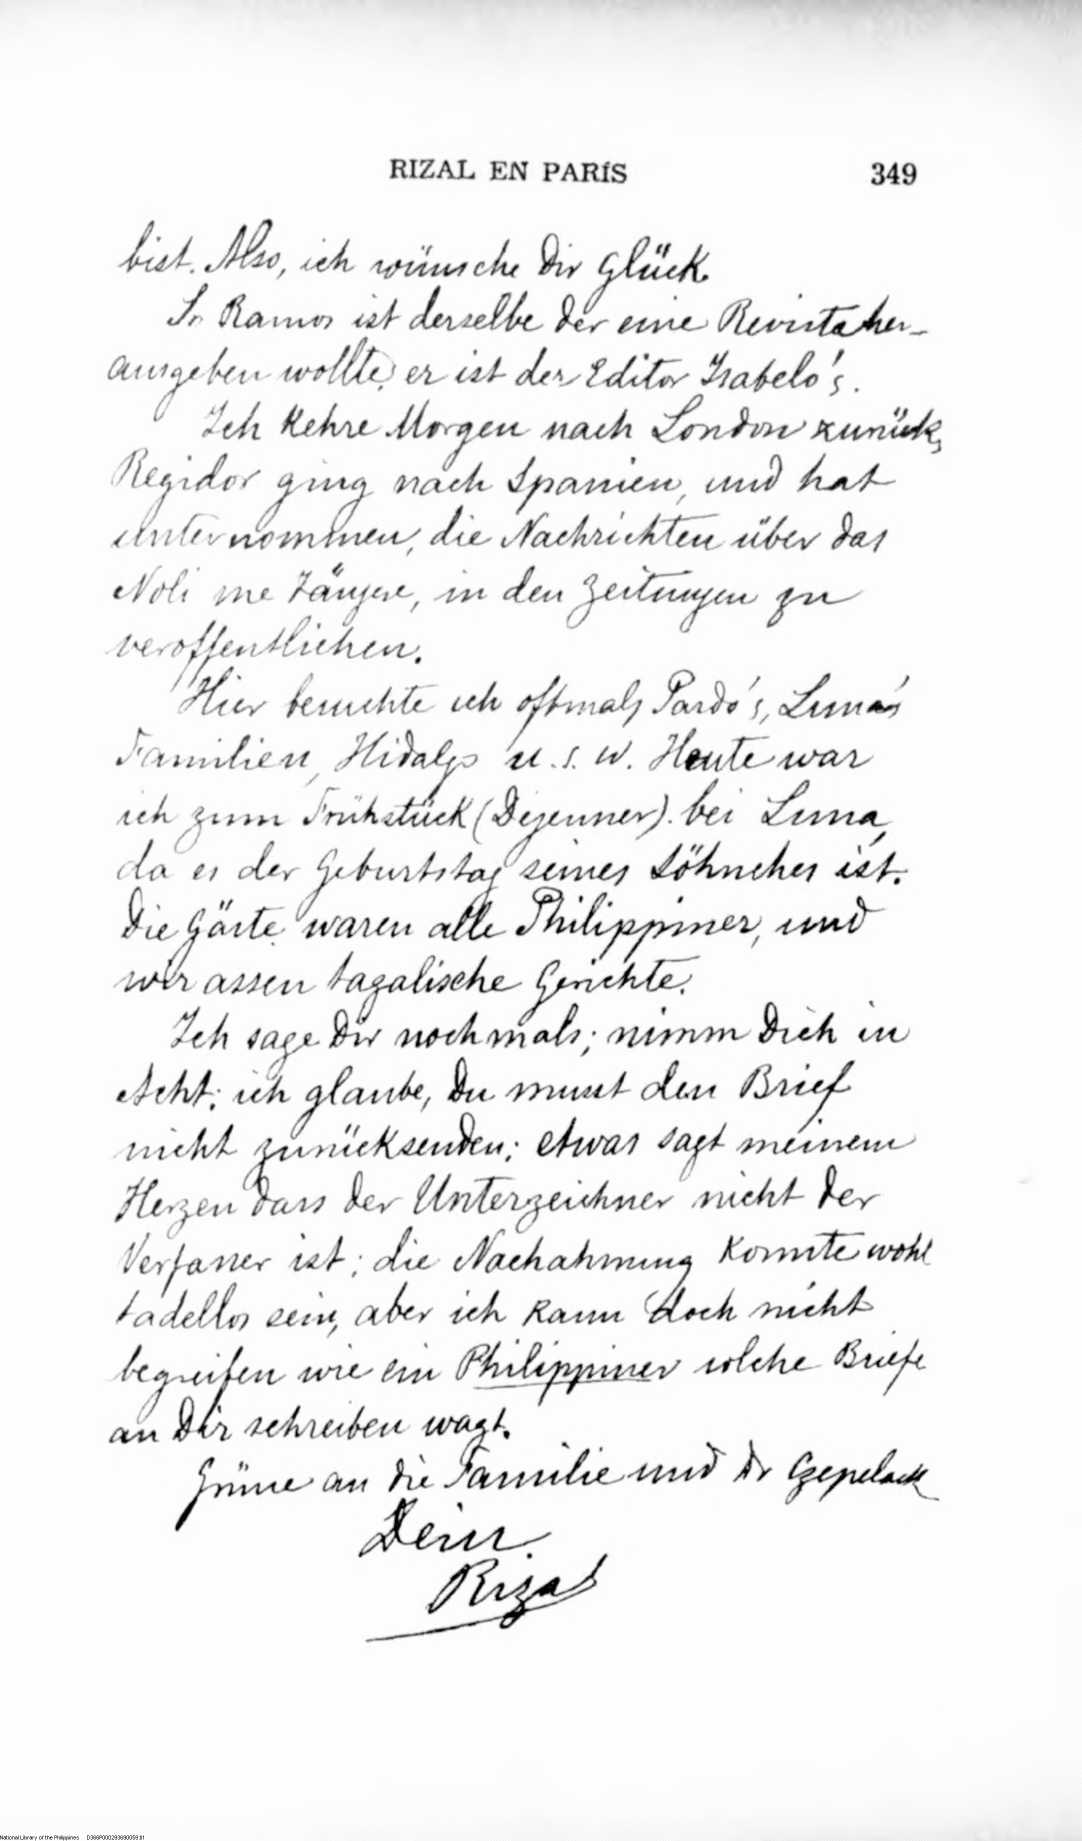 RIZAL EN PARÍS 349
bist. Also, ich wünsche Dir Glück.
Sr Ramos ist derselbe der eine Revista her-
ausgeben wollte, er ist der Editor Isabelo's.
Ich kehre Morgen nach London zurück,
Regidor ging nach Spanien, und hat
unternommen, die Nachrichten über das
Noli me tángere, in den Zeitungen zu
veroffentlichen.
Hier besuchte ich oftmals Pardo's, Luna's
Familien, Hidalgo u. s. w. Heute war
ich zum Frühstück (Dejeuner). bei Luna,
da es der Geburtstag seines Söhnches ist.
Die Gäste waren alle Philippiner, und
wir assen tagalische Gerichte.
Ich sage Dir nochmals; nimm Dich in
Acht; ich glaube, Du musst den Brief
nicht zurücksenden; etwas sagt meinem
Herzen dass der Unterzeichner nicht der
Verfasser ist; die Nachahmung konnte wohl
tadellos sein, aber ich kann doch nicht
begreifen wie ein Philippiner solche Briefe
an Dir schreiben wagt.
Grüsse an die Familie und Dr Czepelack
Dein
Rizal
National Library of the Philippines